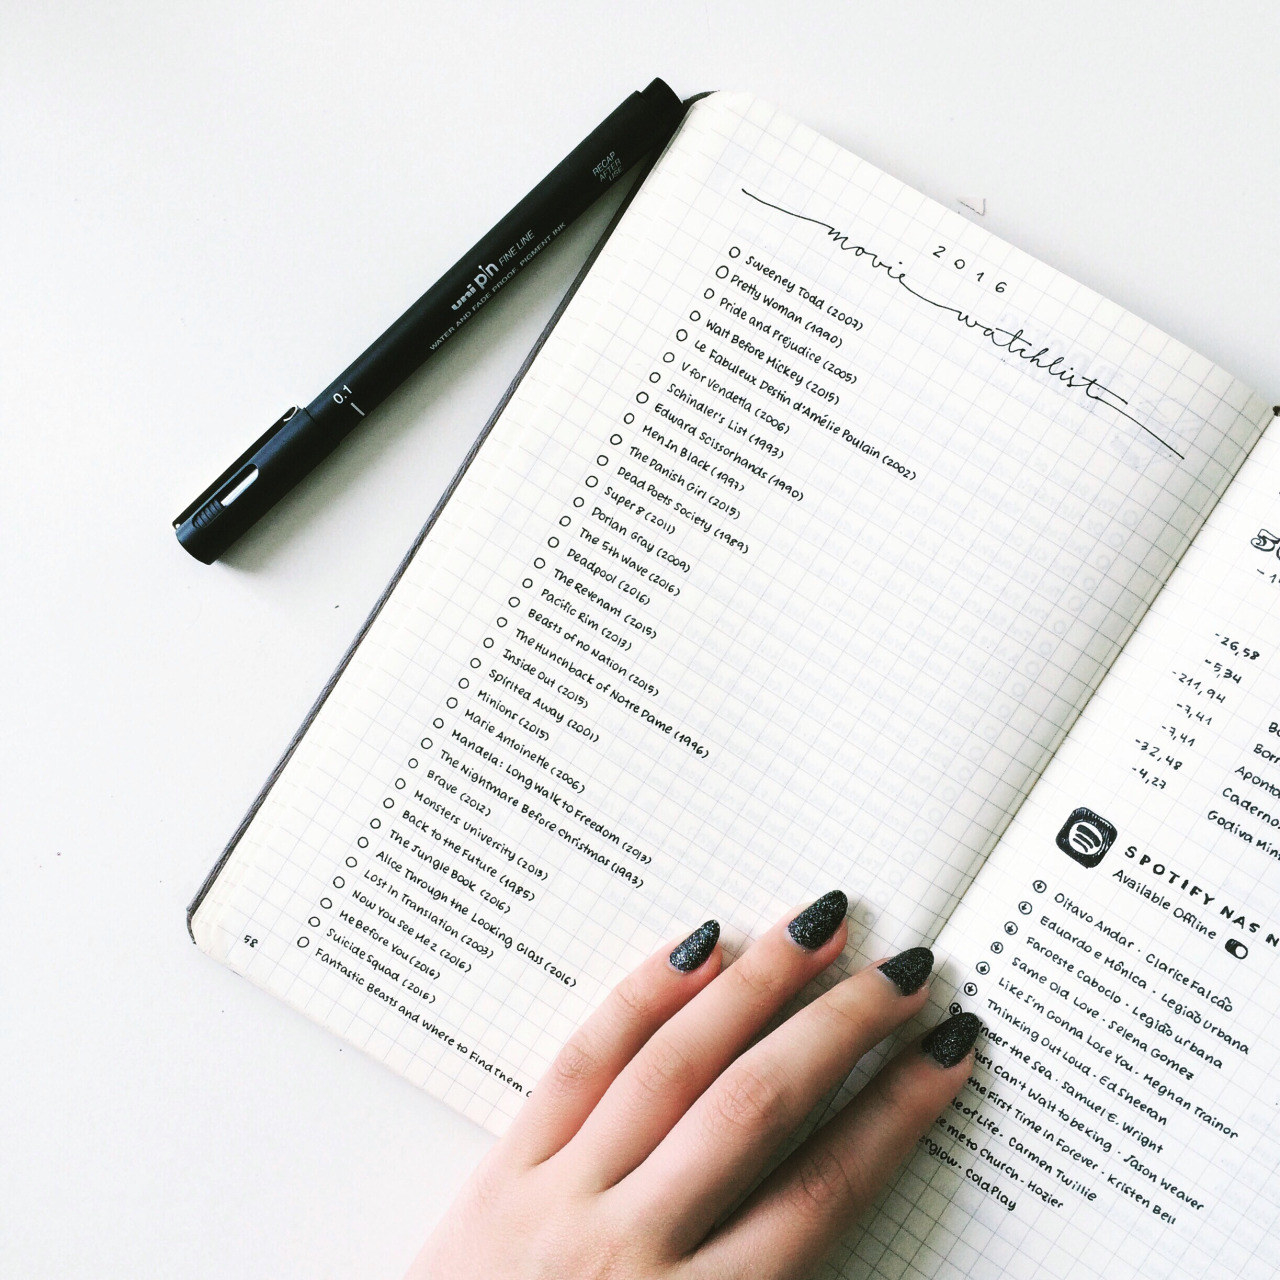 RECAP
AFTER
USE
uni pin FINE LINE
WATER AND FADE PROOF PIGMENT INK
0.1
2016
movie watchlist
Sweeney Todd (2007)
Pretty Woman (1990)
Pride and Prejudice (2005)
Walt Before Mickey (2015)
Le Fabuleux Destin d'Amélie Poulain (2002)
V for Vendetta (2006)
Schindler's List (1993)
Edward Scissorhands (1990)
Men In Black (1997)
The Danish Girl (2015)
Dead Poets Society (1989)
Super 8 (2011)
Dorian Gray (2009)
The 5th Wave (2016)
Deadpool (2016)
The Revenant (2015)
Pacific Rim (2013)
Beasts of no Nation (2015)
The Hunchback of Notre Dame (1996)
Inside Out (2015)
Spirited Away (2001)
Minions (2015)
Marie Antoinette (2006)
Mandela: Long Walk to Freedom (2013)
The Nightmare Before Christmas (1993)
Brave (2012)
Monsters University (2013)
Back to the Future (1985)
The Jungle Book (2016)
Alice Through the Looking Glass (2016)
Lost In Translation (2003)
Now You See Me 2 (2016)
Me Before You (2016)
Suicide Squad (2016)
Fantastic Beasts and Where to Find Them
58
-26,58
-5,34
-211,94
-7,41
-7,41
-32,48
-4,27
Aponta
Caderno
Godiva Min
SPOTIFY NAS N
Available Offline
Oitavo Andar . Clarice Falcão
Eduardo e Mônica . Legião Urbana
Faroeste Caboclo . Legião Urbana
Same Old Love . Selena Gomez
Like I'm Gonna Lose You . Meghan Trainor
Thinking Out Loud . Ed Sheeran
Under the Sea . Samuel E. Wright
Just Can't Wait to be King . Jason Weaver
the First Time in Forever . Kristen Bell
of Life . Carmen Twillie
me to Church . Hozier
erglow . Coldplay